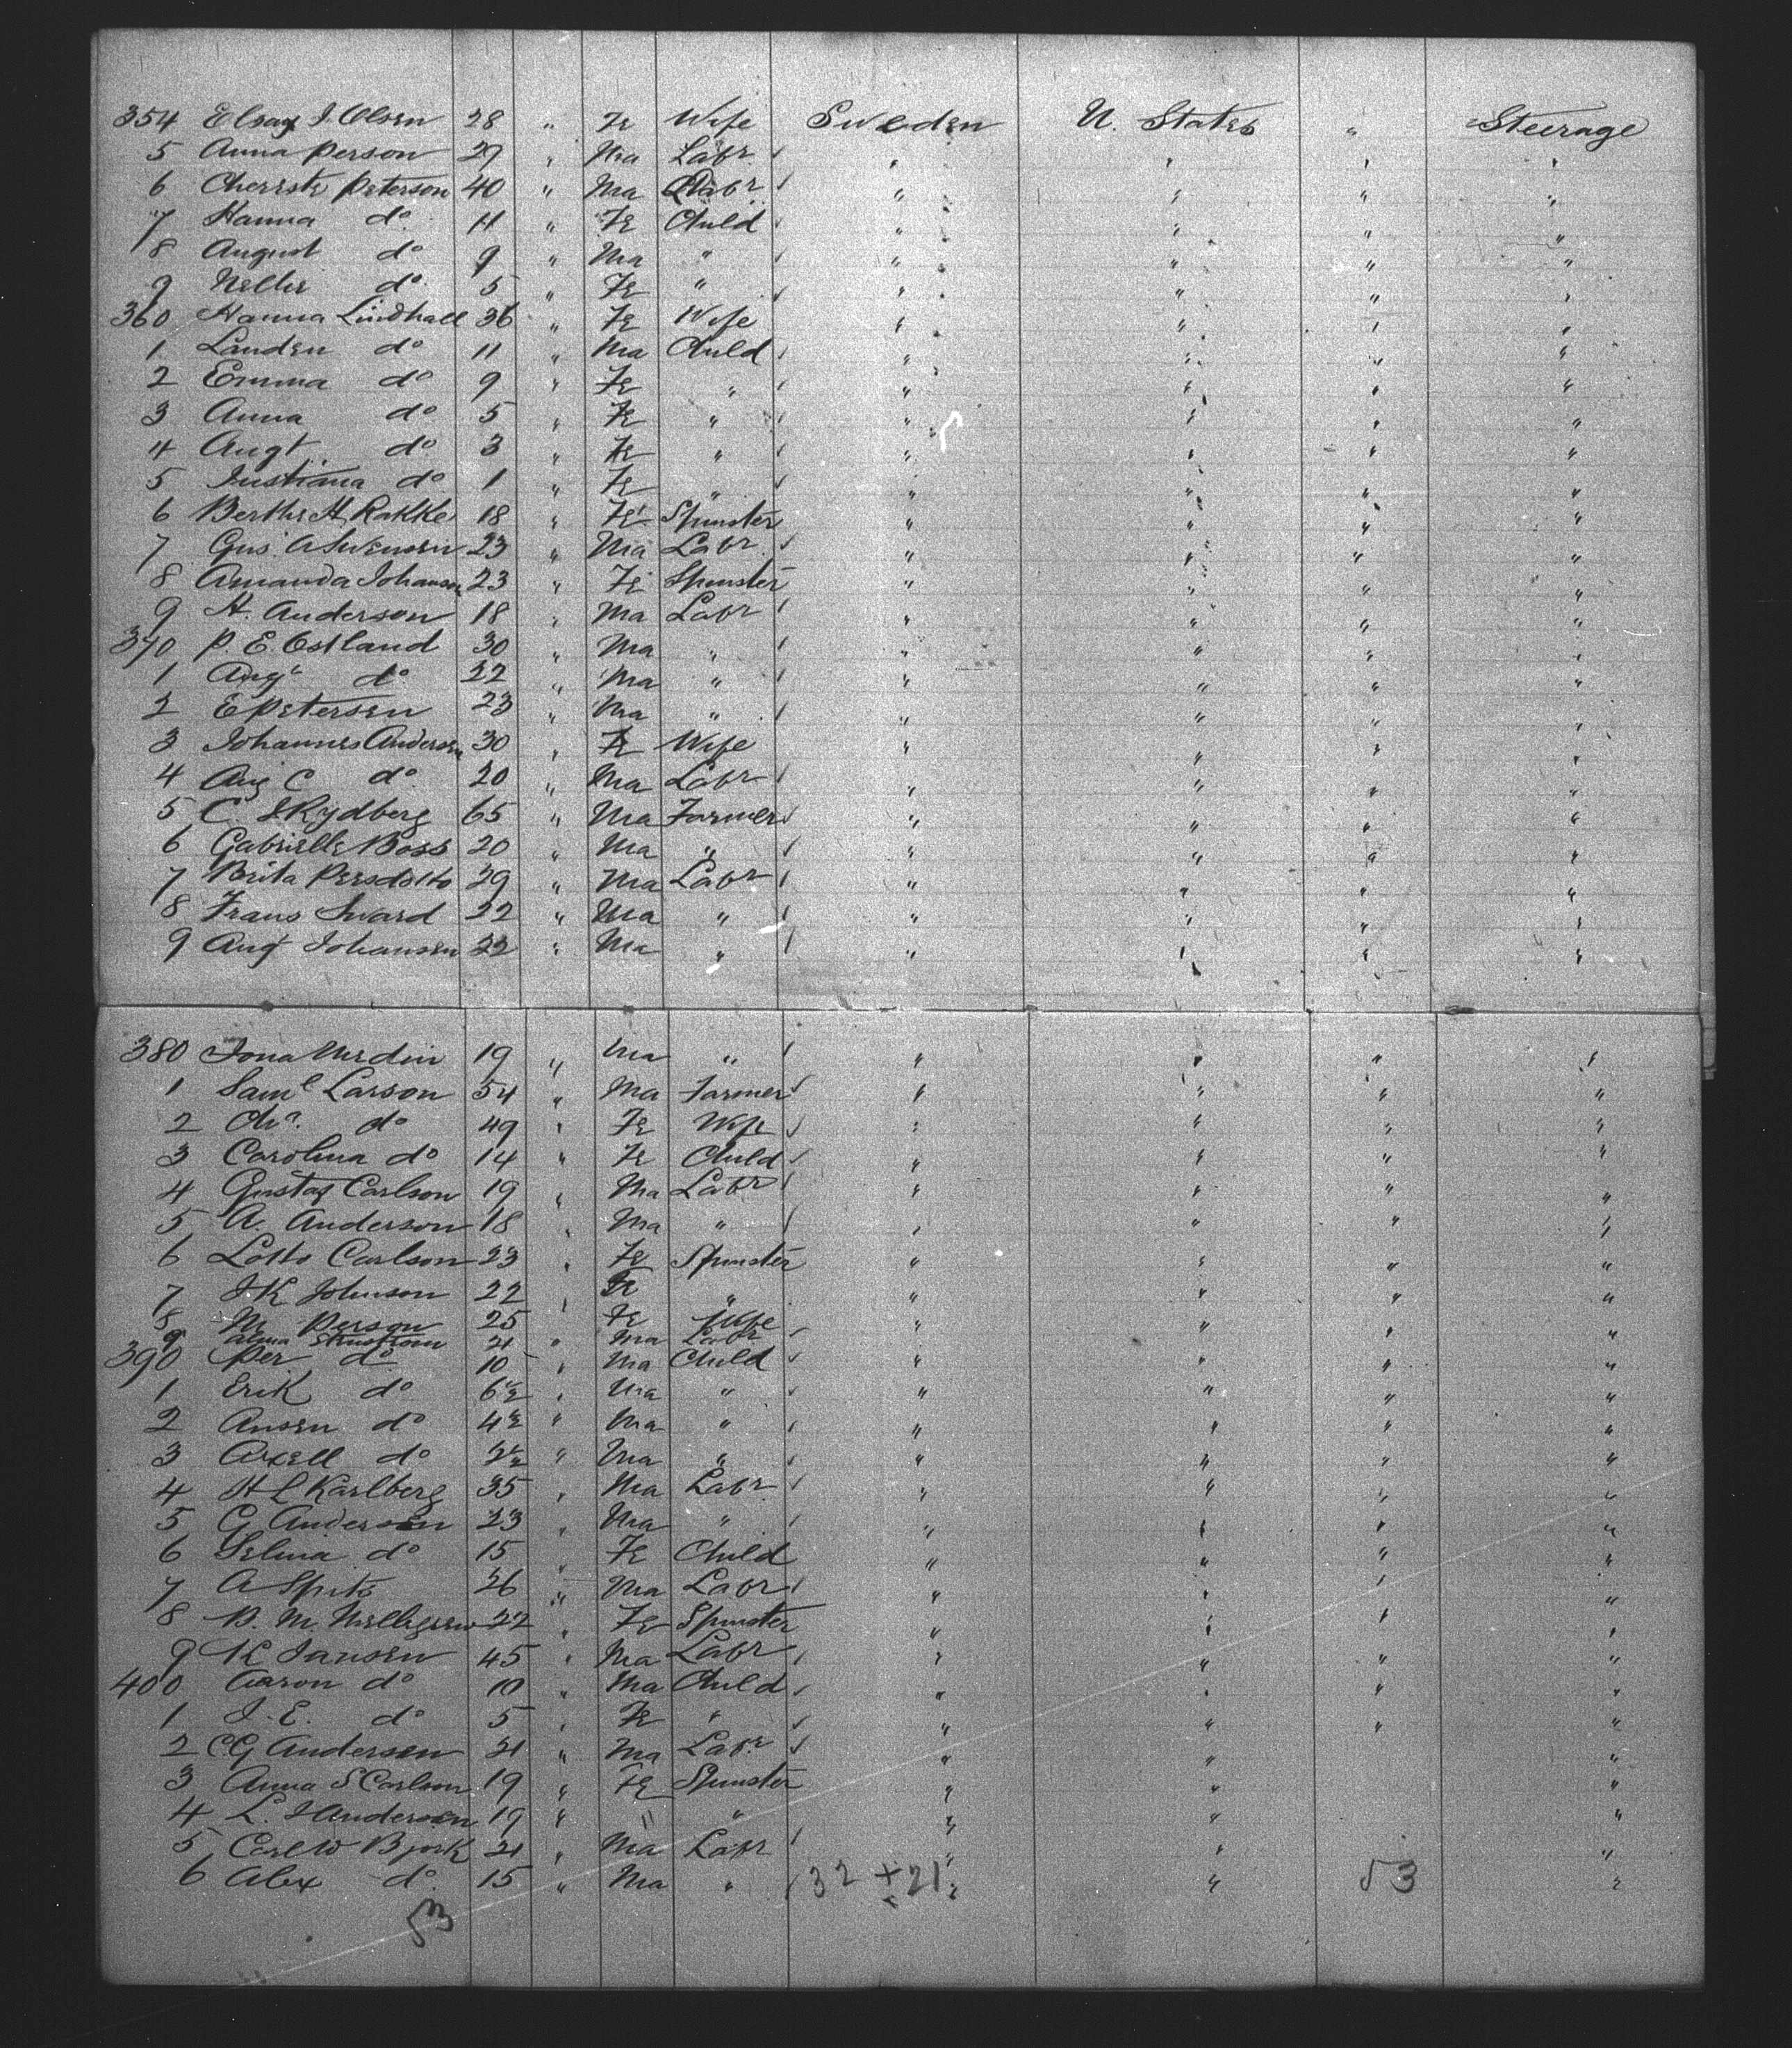 354 Elsay J. Olsen 28 " Fe Wife Sweden U. States " Steerage
5 Anna Person 29 " Ma Labr " " " "
6 Cherste Peterson 40 " Ma Labr " " " "
7 Hanna do 11 " Fe Child " " " "
8 August do 9 " Ma " " " " "
9 Nellie do 5 " Fe " " " " "
360 Hanna Lindhall 36 " Fe Wife " " " "
1 Landen do 11 " Ma Child " " " "
2 Emma do 9 " Fe " " " " "
3 Anna do 5 " Fe " " " " "
4 Augt. do 3 " Fe " " " " "
5 Justiana do 1 " Fe " " " " "
6 Berthe H Rakke 18 " Fe Spinster " " " "
7 Gus. A Swensen 23 " Ma Labr " " " "
8 Amanda Johanson 23 " Fe Spinster " " " "
9 H. Anderson 18 " Ma Labr " " " "
370 P. E. Ostland 30 " Ma " " " " "
1 Aug do 22 " Ma " " " " "
2 E Petersen 23 " Ma " " " " "
3 Johannes Andersen 30 " Fe Wife " " " "
4 Aug C do 20 " Ma Labr " " " "
5 C. Rydberg 65 " Ma Farmer " " " "
6 Gabrielle Boss 20 " Ma " " " " "
7 Brita Persdotto 29 " Ma Labr " " " "
8 Frans Sward 22 " Ma " " " " "
9 Aug Johansen 22 " Ma " " " " "
380 Jona Nerdin 19 " Ma " " " " "
1 Saml Larson 54 " Ma Farmer " " " "
2 Cha. do 49 " Fe Wife " " " "
3 Carolina do 14 " Fe Child " " " "
4 Gustaf Carlson 19 " Ma Labr " " " "
5 A. Anderson 18 " Ma " " " " "
6 Lotto Carlson 23 " Fe Spinster " " " "
7 J K Johnson 22 " Fe " " " " "
8 M Person 25 Fe Wife " " " "
9 Alma 21 " Ma Labr " " "
390 Per do 10 " Ma Child " " " "
1 Erik do 6½ " Ma " " " " "
2 Ansen do 4½ " Ma " " " " "
3 Axell do 2½ " Ma " " " " "
4 H L Karlberg 35 " Ma Labr " " " "
5 G Andersen 23 " Ma " " " " "
6 Selma do 15 " Fe Child " " " "
7 A Spits 26 " Ma Labr " " " "
8 B. M. 22 " Fe Spinster " " " "
9 K Jansen 45 " Ma Labr " " " "
400 Aaron do 10 " Ma Child " " " "
1 J. E. do 5 " Fe " " " " "
2 C. G Andersen 21 " Ma Labr " " "
3 Anna S Carlson 19 " Fe Spinster " " "
4 L. J Andersen 19 " " " " " "
5 Carl W Bjork 21 " Ma Labr " " "
6 Alex do 15 " Ma " 32 + 21 " " 53 "
53